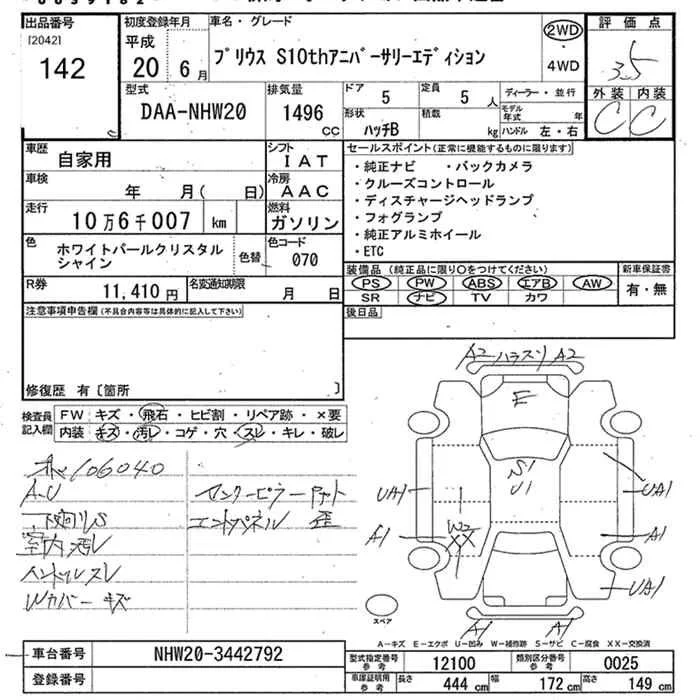 出品番号
[2042]
142
初度登録年月
平成
20 年 6 月
車名・グレード
プリウス S10thアニバーサリーエディション
2WD
・
4WD
評価点
3.5
外装 内装
C C
型式
DAA-NHW20
排気量
1496 CC
ドア 5
定員 5 人
形状 ハッチB
積載 kg
ディーラー・並行
モデル年式 年
ハンドル 左・右
車歴
自家用
シフト
IAT
車検
年 月 ( 日)
冷房
AAC
走行
10万6千007 km
燃料
ガソリン
色
ホワイトパールクリスタルシャイン
色替
色コード
070
R券
11,410 円
名変通知期限
月 日
セールスポイント(正常に機能するものに限ります)
・純正ナビ ・バックカメラ
・クルーズコントロール
・ディスチャージヘッドランプ
・フォグランプ
・純正アルミホイール
・ETC
装備品(純正品に限り○をつけてください)
PS PW ABS エアB AW
SR ナビ TV カワ
新車保証書
有・無
後日品
注意事項申告欄(不具合内容等は具体的に記入して下さい)
修復歴 有〔箇所 〕
検査員記入欄
FW キズ・飛石・ヒビ割・リペア跡・×要
内装 キズ・汚レ・コゲ・穴・スレ・キレ・破レ
106040
室内汚レ
ハンドルスレ
Wカバーキズ
センターピラー
エンドパネル 歪
A2 A2
E
S1
U1
UA1 UA1
A1 W2 A1
XX
UA1
A1 A1
スペア
A-キズ E-エクボ U-凹み W-補修跡 S-サビ C-腐食 XX-交換済
車台番号
NHW20-3442792
登録番号
型式指定番号 参考
12100
類別区分番号 参考
0025
車庫証明用 参考
長さ 444 cm 幅 172 cm 高さ 149 cm